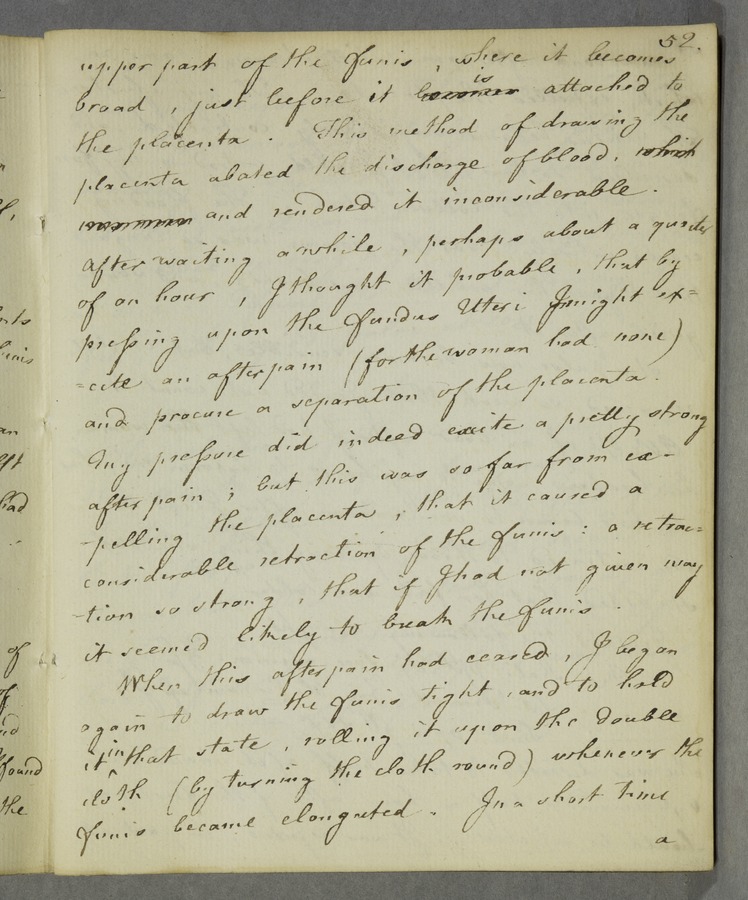 52.
upper part of the funis, where it becomes
broad, just before it becomes is attached to
the placenta. This method of drawing the
placenta abated the discharge of blood, which
and rendered it inconsiderable.
After waiting awhile, perhaps about a quarter
of an hour, I thought it probable, that by
pressing upon the fundus Uteri I might ex=
=cite an afterpain (for the woman had none)
and procure a separation of the placenta.
My pressure did indeed excite a pretty strong
afterpain; but this was so far from ex-
-pelling the placenta, that it caused a
considerable retraction of the funis: a retrac=
-tion so strong, that if I had not given way
it seemed likely to break the funis.
When this afterpain had ceased, I began
again to draw the funis tight, and to hold
it in that state, rolling it upon the double
cloth (by turning the cloth round) whenever the
funis became elongated. In a short time
a